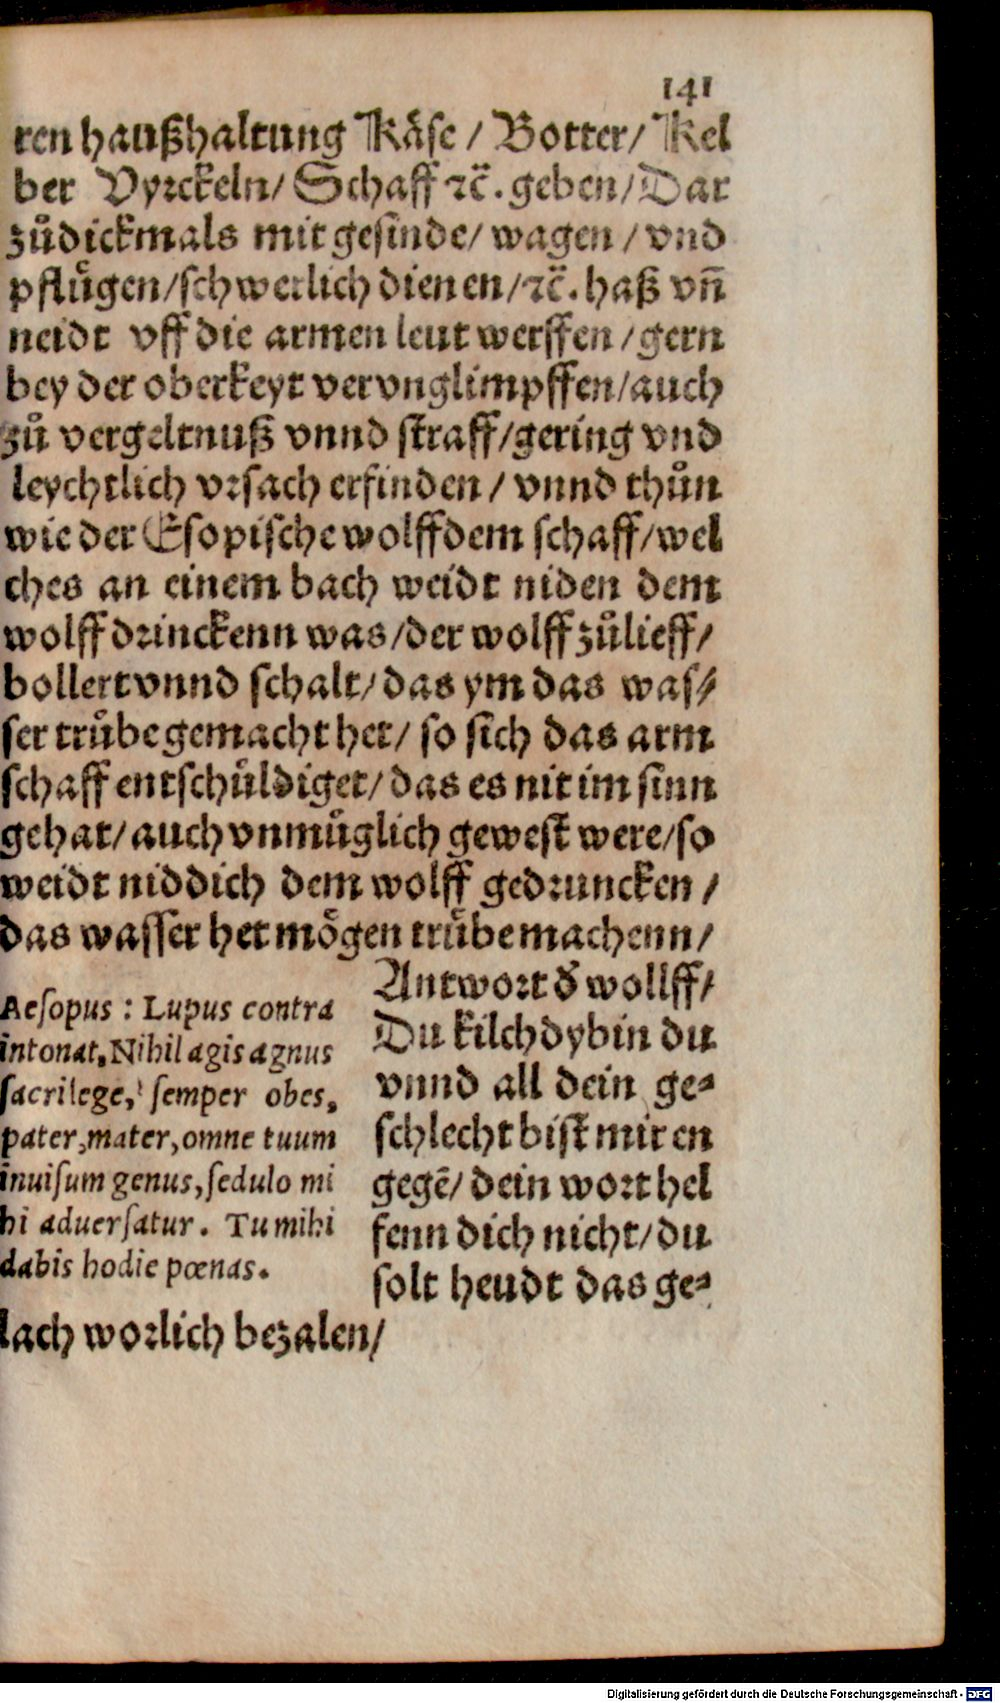 141
ren haußhaltung Käse / Botter/ Kel
ber Vyrckeln/ Schaff ꝛc̃. geben/ Dar
zůdickmals mit gesinde/ wagen / vnd
pflůgen/schwerlich dienen/ꝛc̃. haß vñ
neidt vff die armen leut werffen /gern
bey der oberkeyt vervnglimpffen/auch
zů vergeltnuß vnnd straff/gering vnd
leychtlich vrsach erfinden / vnnd thůn
wie der Esopische wolff dem schaff/wel
ches an einem bach weidt niden dem
wolff drinckenn was/der wolff zůlieff/
bollert vnnd schalt/das ym das was⸗
ser trůbe gemacht het/ so sich das arm
schaff entschůldiget/das es nit im sinn
gehat/auch vnmůglich gewest were/so
weidt niddich dem wolff gedruncken /
das wasser het mögen trůbe machenn/
Antwort d̕ wollff/
Du kilchdybin du
vnnd all dein ge⸗
schlecht bist mir en
gegē/ dein wort hel
fenn dich nicht/du
solt heudt das ge⸗
lach worlich bezalen/
Aesopus : Lupus contra
intonat, Nihil agis agnus
sacrilege, semper obes,
pater, mater, omne tuum
inuisum genus, sedulo mi
hi aduersatur. Tu mihi
dabis hodie pœnas.
Digitalisierung gefördert durch die Deutsche Forschungsgemeinschaft - DFG